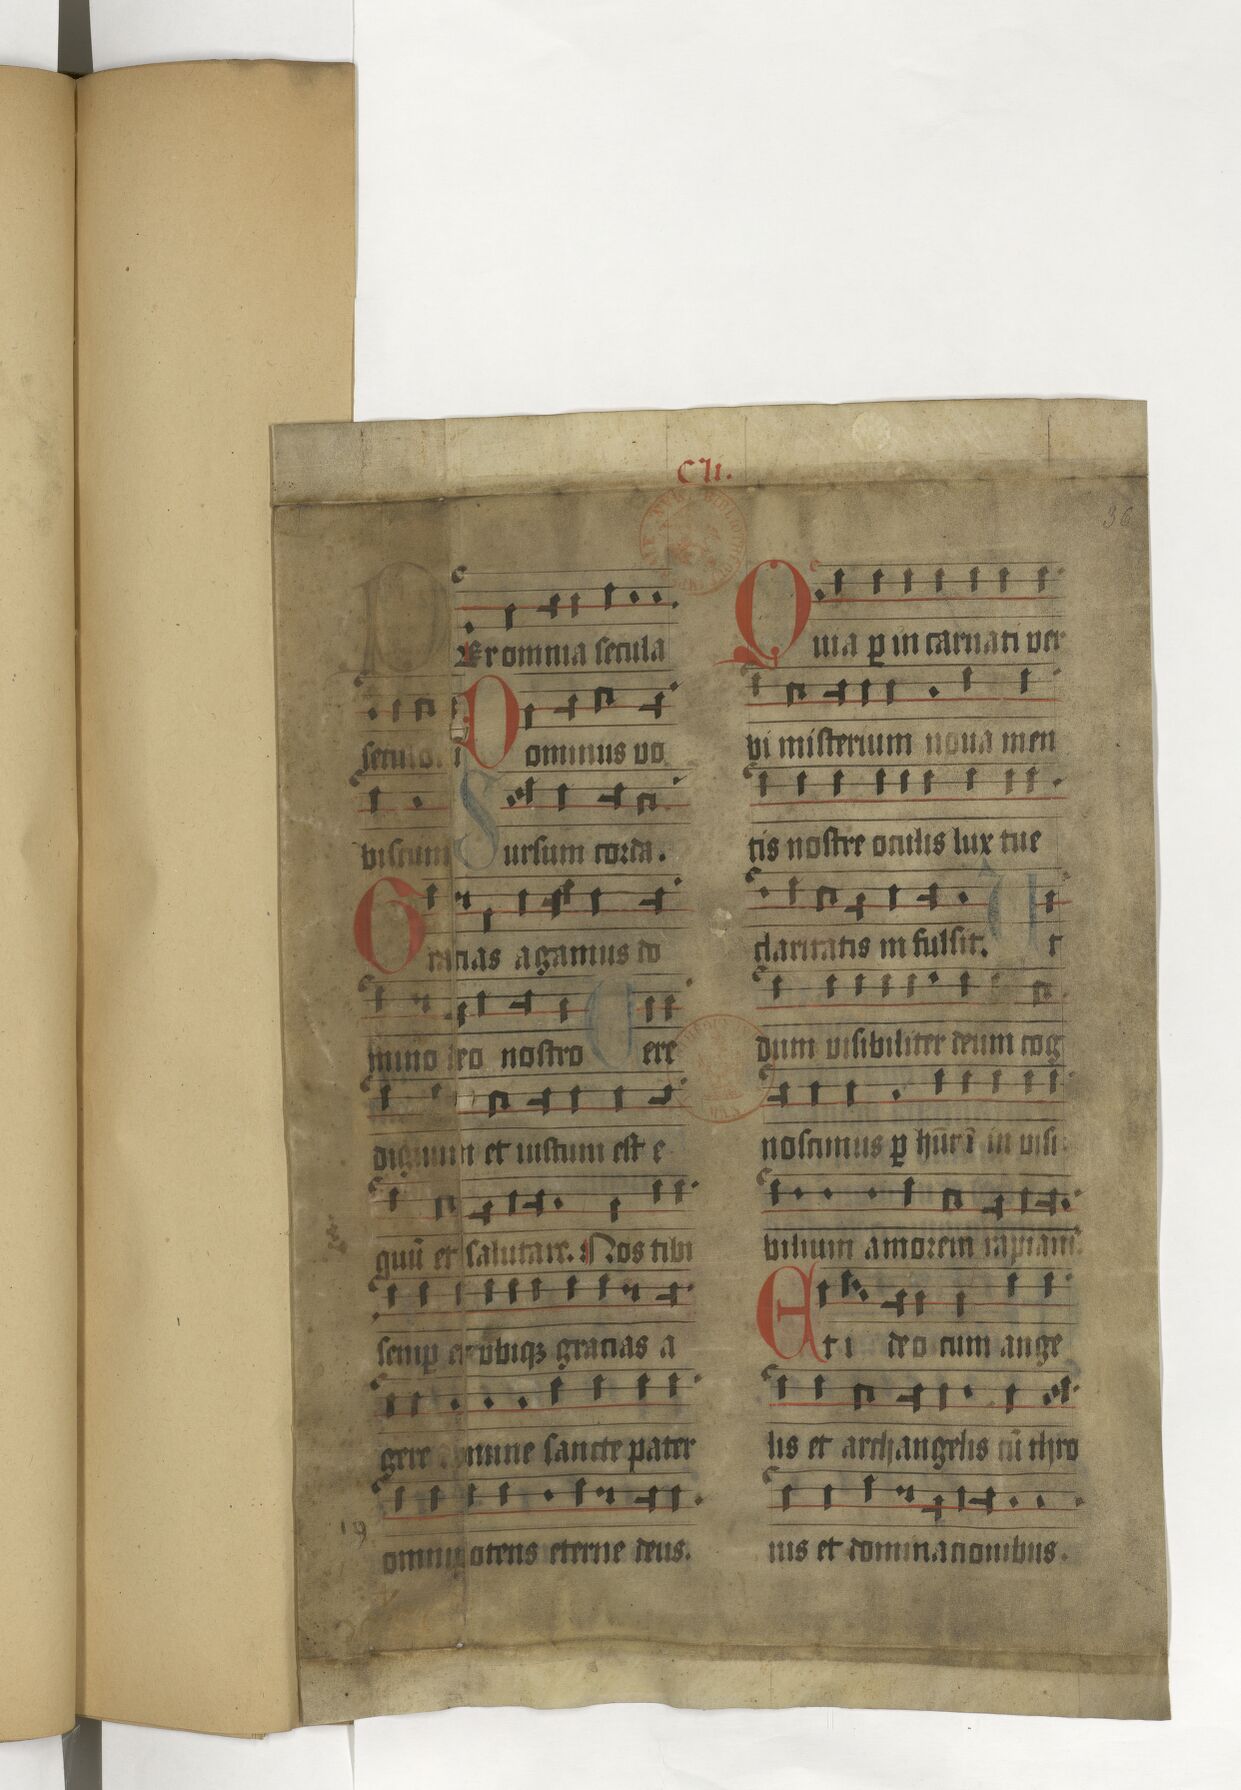 Cli.
36
Per omnia secula
seculor͂ Dominus vo
biscum Sursum corda.
Gracias agamus do
mino deo nostro Vere
dignum et iustum est e
quū et salutare. Nos tibi
semꝑ et vbiqꝫ gracias a
gere domine sancte pater
omnipotens eterne deus.
Quia ꝑ in carnati ver
bi misterium noua men
tis nostre oculis lux tue
claritatis in fulsit. Ut
dum visibiliter deum cog
noscimus ꝑ hūc ī in visi
bilium amorem rapiamᷓ
Et i deo cum ange
lis et archangelis cū thro
nis et dominacionibus.
19